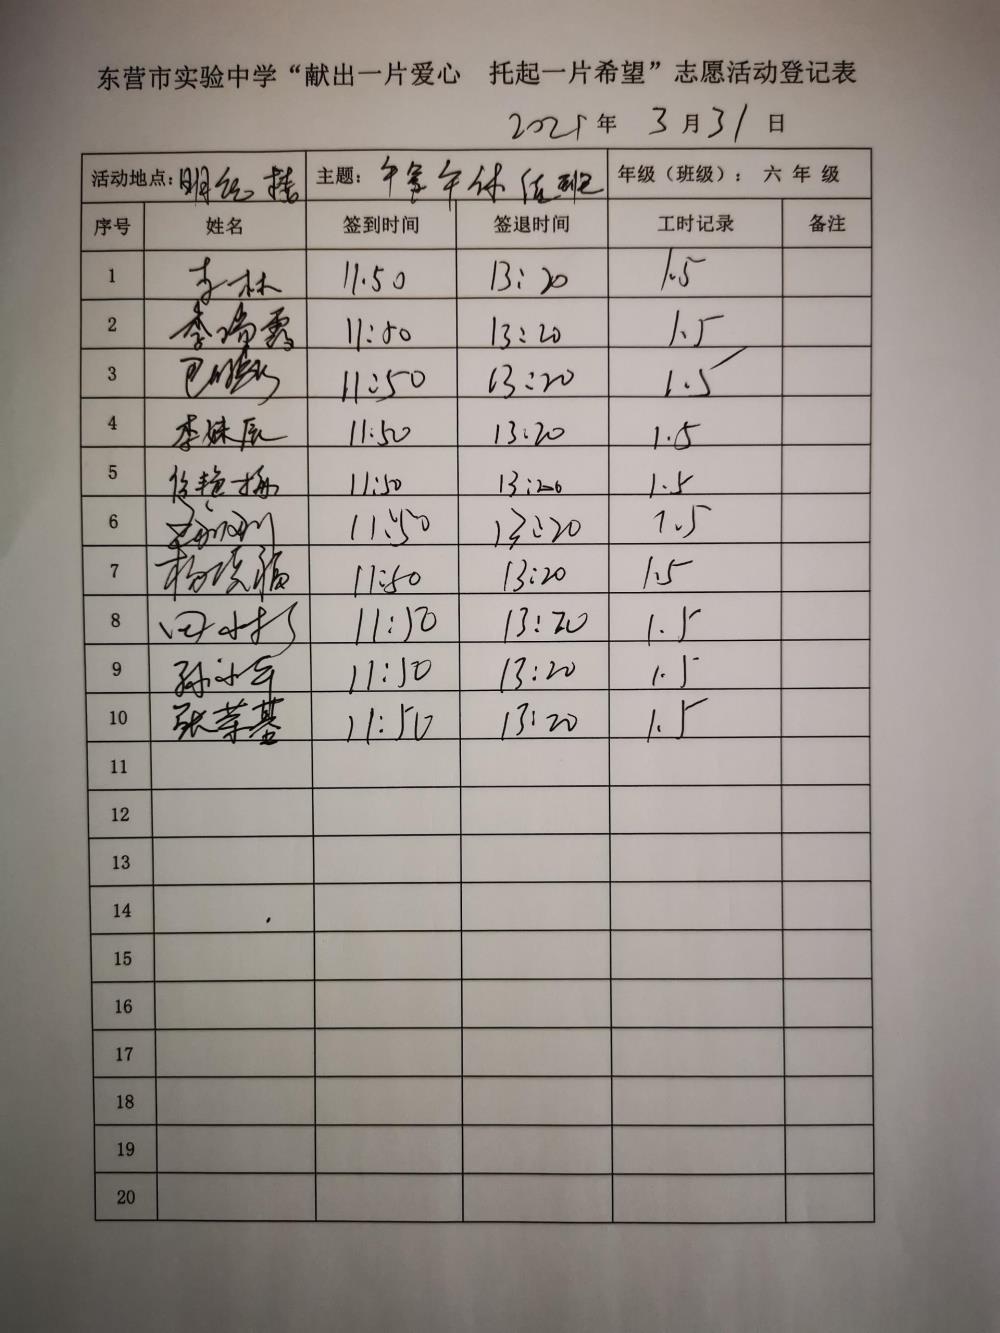 东营市实验中学“献出一片爱心 托起一片希望”志愿活动登记表
2021年 3月31日
活动地点: 明德楼 主题: 午餐午休值班 年级（班级）: 六 年 级
序号 姓名 签到时间 签退时间 工时记录 备注
1 李林 11:50 13:20 1.5
2 李瑞霞 11:50 13:20 1.5
3 11:50 13:20 1.5
4 李姝辰 11:50 13:20 1.5
5 徐艳梅 11:50 13:20 1.5
6 11:50 13:20 1.5
7 杨晓福 11:50 13:20 1.5
8 田小杉 11:50 13:20 1.5
9 孙小军 11:50 13:20 1.5
10 张荣基 11:50 13:20 1.5
11
12
13
14
15
16
17
18
19
20